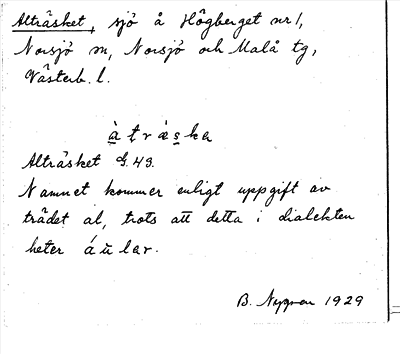 Alträsket, sjö å Högberget nr 1,
Norsjö sn, Norsjö och Malå tg,
Västerb. l.
à t r æ s k a
Alträsket G. 43.
Namnet kommer enligt uppgift av
trädet al, trots att detta i dialekten
heter á ŭ l a r.
B. Nygren 1929